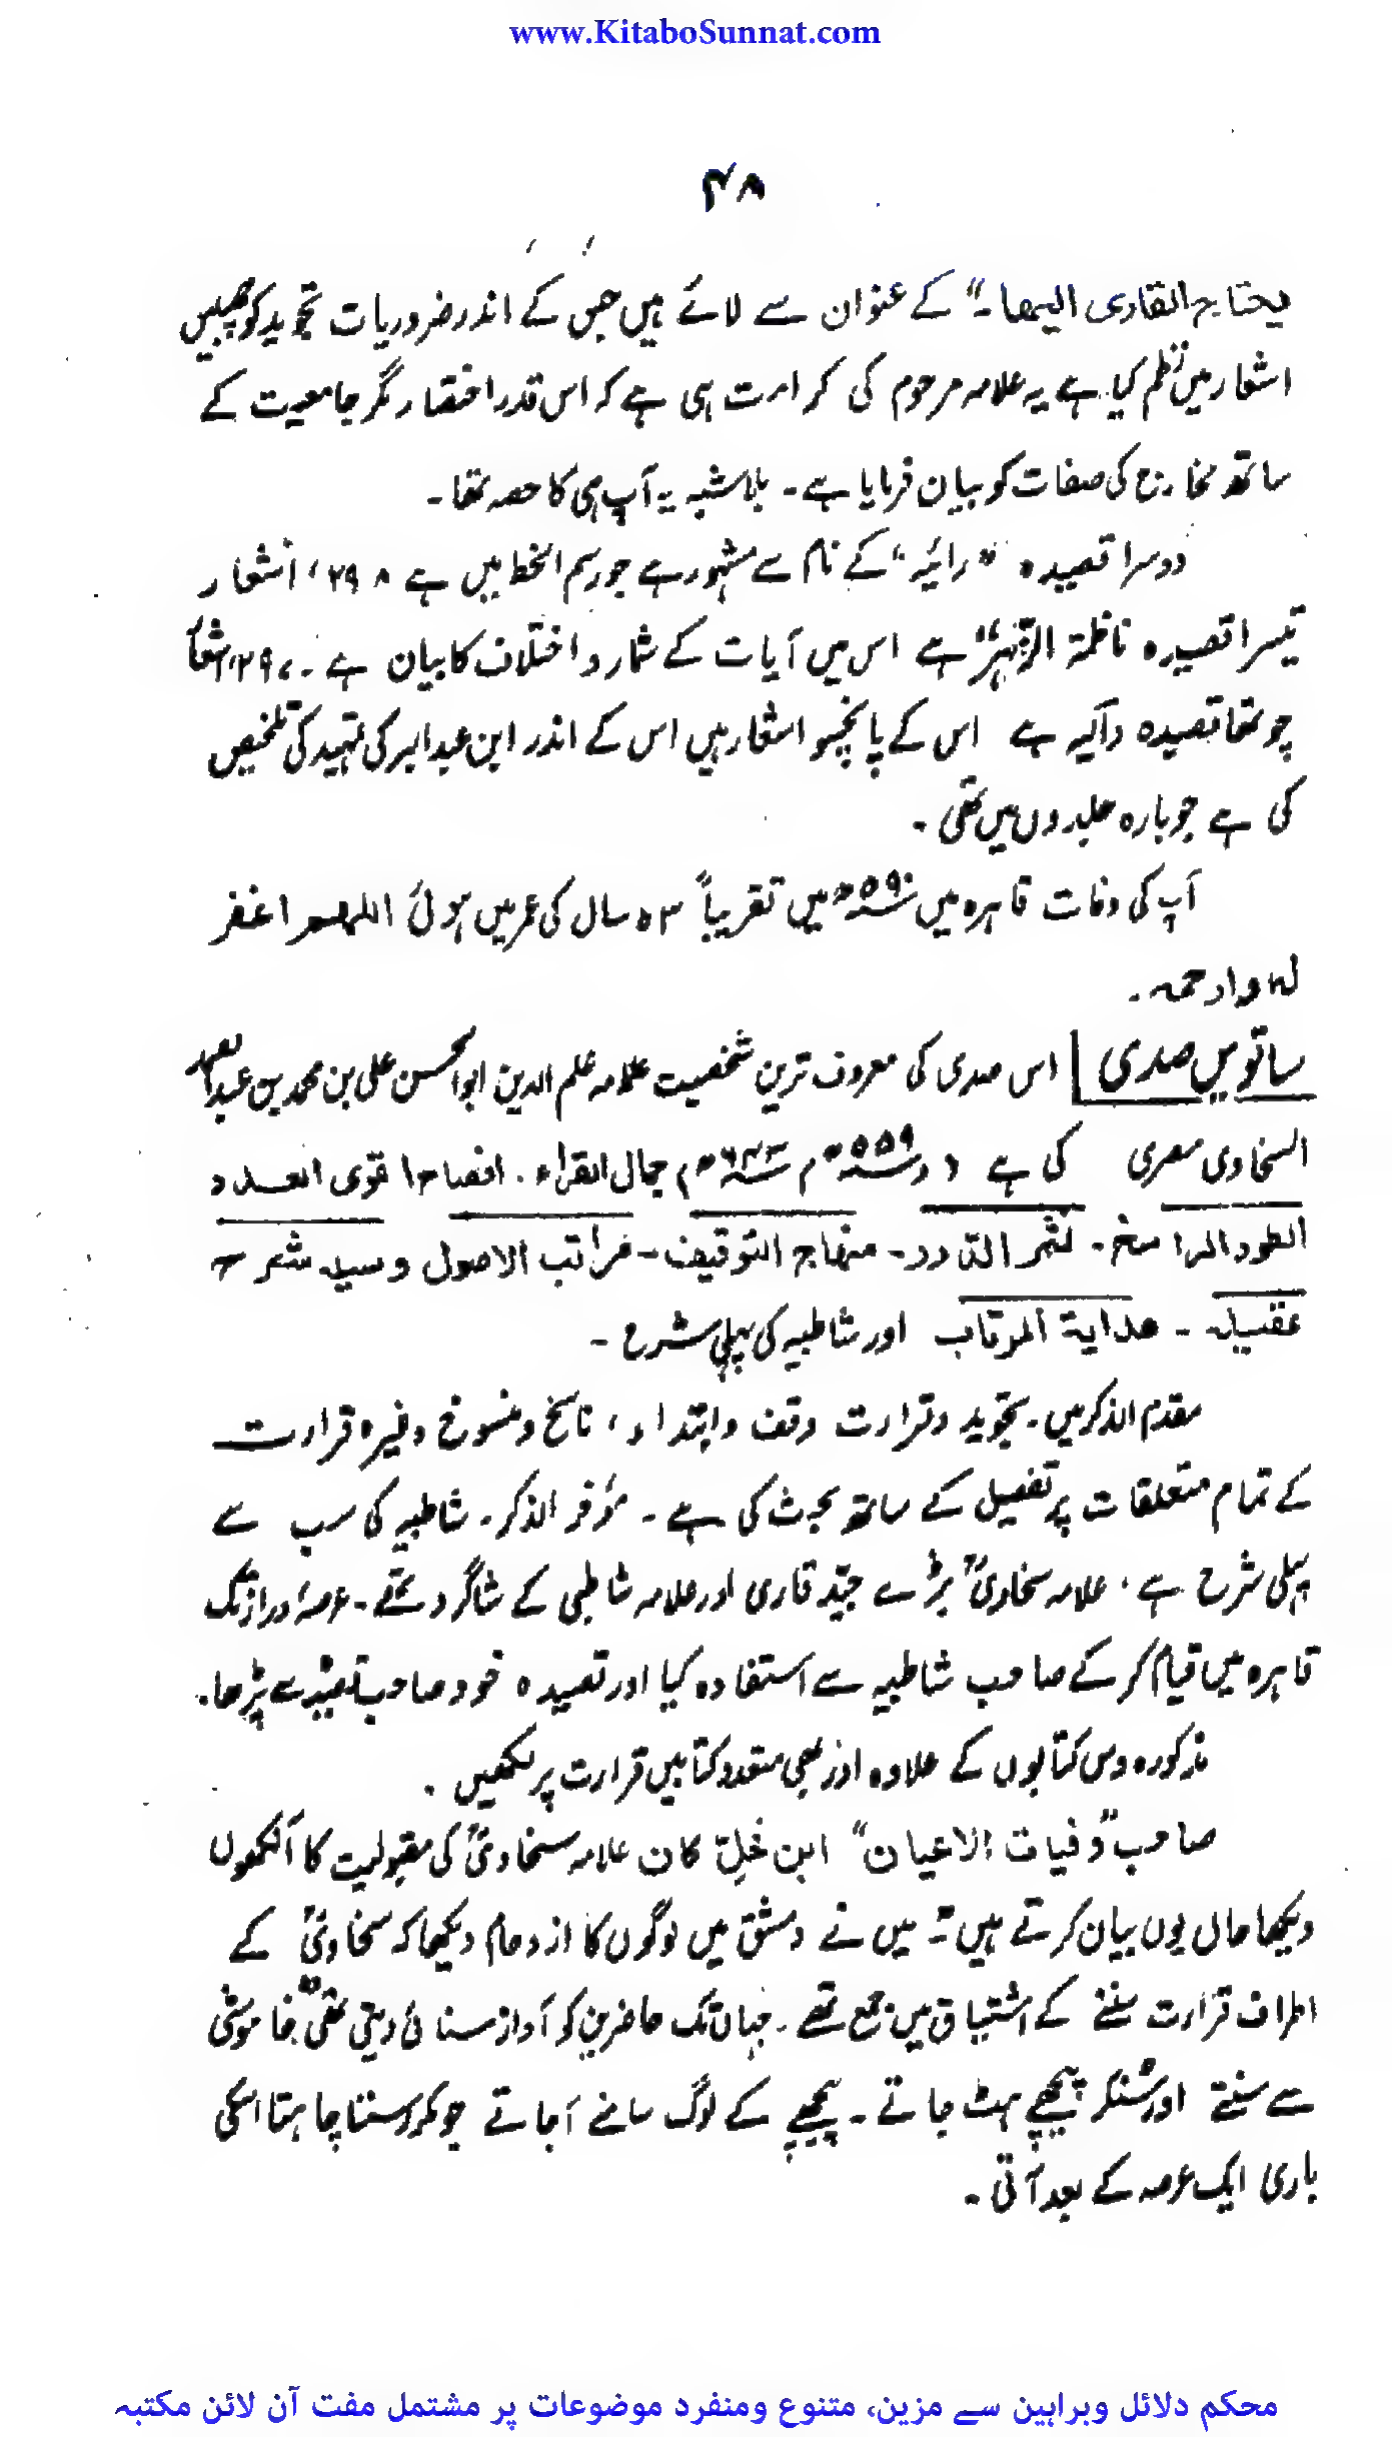 www.KitaboSunnat.com
۴۸
یحتاج القاری الیھا۔" کے عنوان سے لائے ہیں جس کے اندر ضروریات تجوید کو چھبیس
اشعار میں نظم کیا ہے یہ علامہ مرحوم کی کرامت ہی ہے کہ اس قدر اختصار مگر جامعیت کے
ساتھ مخارج کی صفات کو بیان فرمایا ہے۔ بلاشبہ یہ آپ ہی کا حصہ تھا۔
دوسرا قصیدہ "رائیہ" کے نام سے مشہور ہے جو رسم الخط میں ہے ۲۹۸، اشعار
تیسرا قصیدہ ناظمۃ الزھر" ہے اس میں آیات کے شمار و اختلاف کا بیان ہے۔ ۲۹۷، اشعار
چوتھا قصیدہ دالیہ ہے اس کے پانچسو اشعار ہیں اس کے اندر ابن عبدالبر کی تمہید کی تلخیص
کی ہے جو بارہ جلدوں میں تھی۔
آپ کی وفات قاہرہ میں ۵۹۰ھ میں تقریباً ۵۳ سال کی عمر میں ہوئی اللھم اغفر
لہ وارحمہ۔
ساتویں صدی | اس صدی کی معروف ترین شخصیت علامہ علم الدین ابوالحسن علی بن محمد بن عبدالصمد
السخاوی مصری کی ہے (و ۵۵۹ھ م ۶۴۳ھ) جمال القراء۔ افصاح اقوی العدد
الطود الراسخ۔ نثر الدرر۔ منهاج التوقیف۔ مراتب الاصول وسیلہ شرح
عقیلہ۔ ھدایۃ المرتاب اور شاطبیہ کی پہلی شرح۔
مقدم الذکر میں۔ تجوید و قرارت وقف و ابتداء، ناسخ و منسوخ وغیرہ قرارت
کے تمام متعلقات پر تفصیل کے ساتھ بحث کی ہے۔ مؤخر الذکر۔ شاطبیہ کی سب سے
پہلی شرح ہے، علامہ سخاویؒ بڑے جیّد قاری اور علامہ شاطبی کے شاگرد تھے۔ عرصۂ دراز تک
قاہرہ میں قیام کر کے صاحب شاطبیہ سے استفادہ کیا اور قصیدہ خود صاحب قصیدہ سے پڑھا۔
مذکورہ دس کتابوں کے علاوہ اور بھی متعدد کتابیں قرارت پر لکھیں۔
صاحب "وفیات الاعیان" ابن خلّکان علامہ سخاویؒ کی مقبولیت کا آنکھوں
دیکھا حال یوں بیان کرتے ہیں۔ میں نے دمشق میں لوگوں کا ازدحام دیکھا کہ سخاویؒ کے
اطراف قرارت سننے کے اشتیاق میں جمع تھے۔ جہاں تک حاضرین کو آواز سنائی دیتی تھی خاموشی
سے سنتے اور سُنکر پیچھے ہٹ جاتے۔ پیچھے کے لوگ سامنے آجاتے جو مکرر سننا چاہتا اسکی
باری ایک عرصہ کے بعد آتی۔
محکم دلائل وبراہین سے مزین، متنوع ومنفرد موضوعات پر مشتمل مفت آن لائن مکتبہ